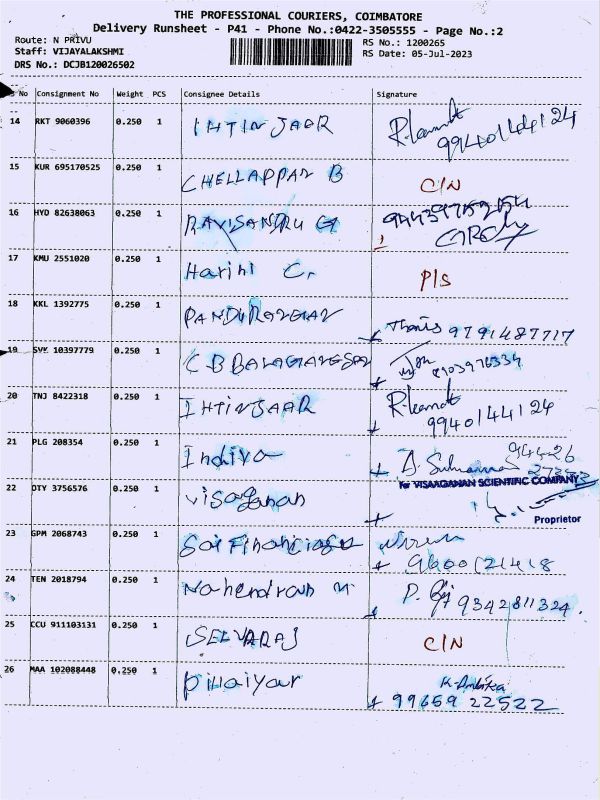 THE PROFESSIONAL COURIERS, COIMBATORE
Delivery Runsheet - P41 - Phone No.:0422-3505555 - Page No.:2
Route: N PRIVU
RS No.: 1200265
Staff: VIJAYALAKSHMI
RS Date: 05-Jul-2023
DRS No.: DCJB120026502
No Consignment No Weight PCS Consignee Details Signature
14 RKT 9060396 0.250 1 IHTINJAER
99401 44124
15 KUR 695170525 0.250 1 CHELLAPPAN B C/N
16 HYD 82638063 0.250 1 RAVISANDRU G
17 KMU 2551020 0.250 1 Harini C. P/S
18 KKL 1392775 0.250 1 PANDURANGAN
9791487717
19 10397779 0.250 1
8903976334
20 TNJ 8422318 0.250 1 IHTINJAAR
99401 44124
21 PLG 208354 0.250 1 Indiya
94426
for VISAAGANAN SCIENTIFIC COMPANY
22 OTY 3756576 0.250 1 Visaganan
Proprietor
23 GPM 2068743 0.250 1
9600121418
24 TEN 2018794 0.250 1 Mahendran M
9342811324.
25 CCU 911103131 0.250 1 SELVARAJ C/N
26 MAA 102088448 0.250 1 Pillaiyar K. Ambika
99659 22522